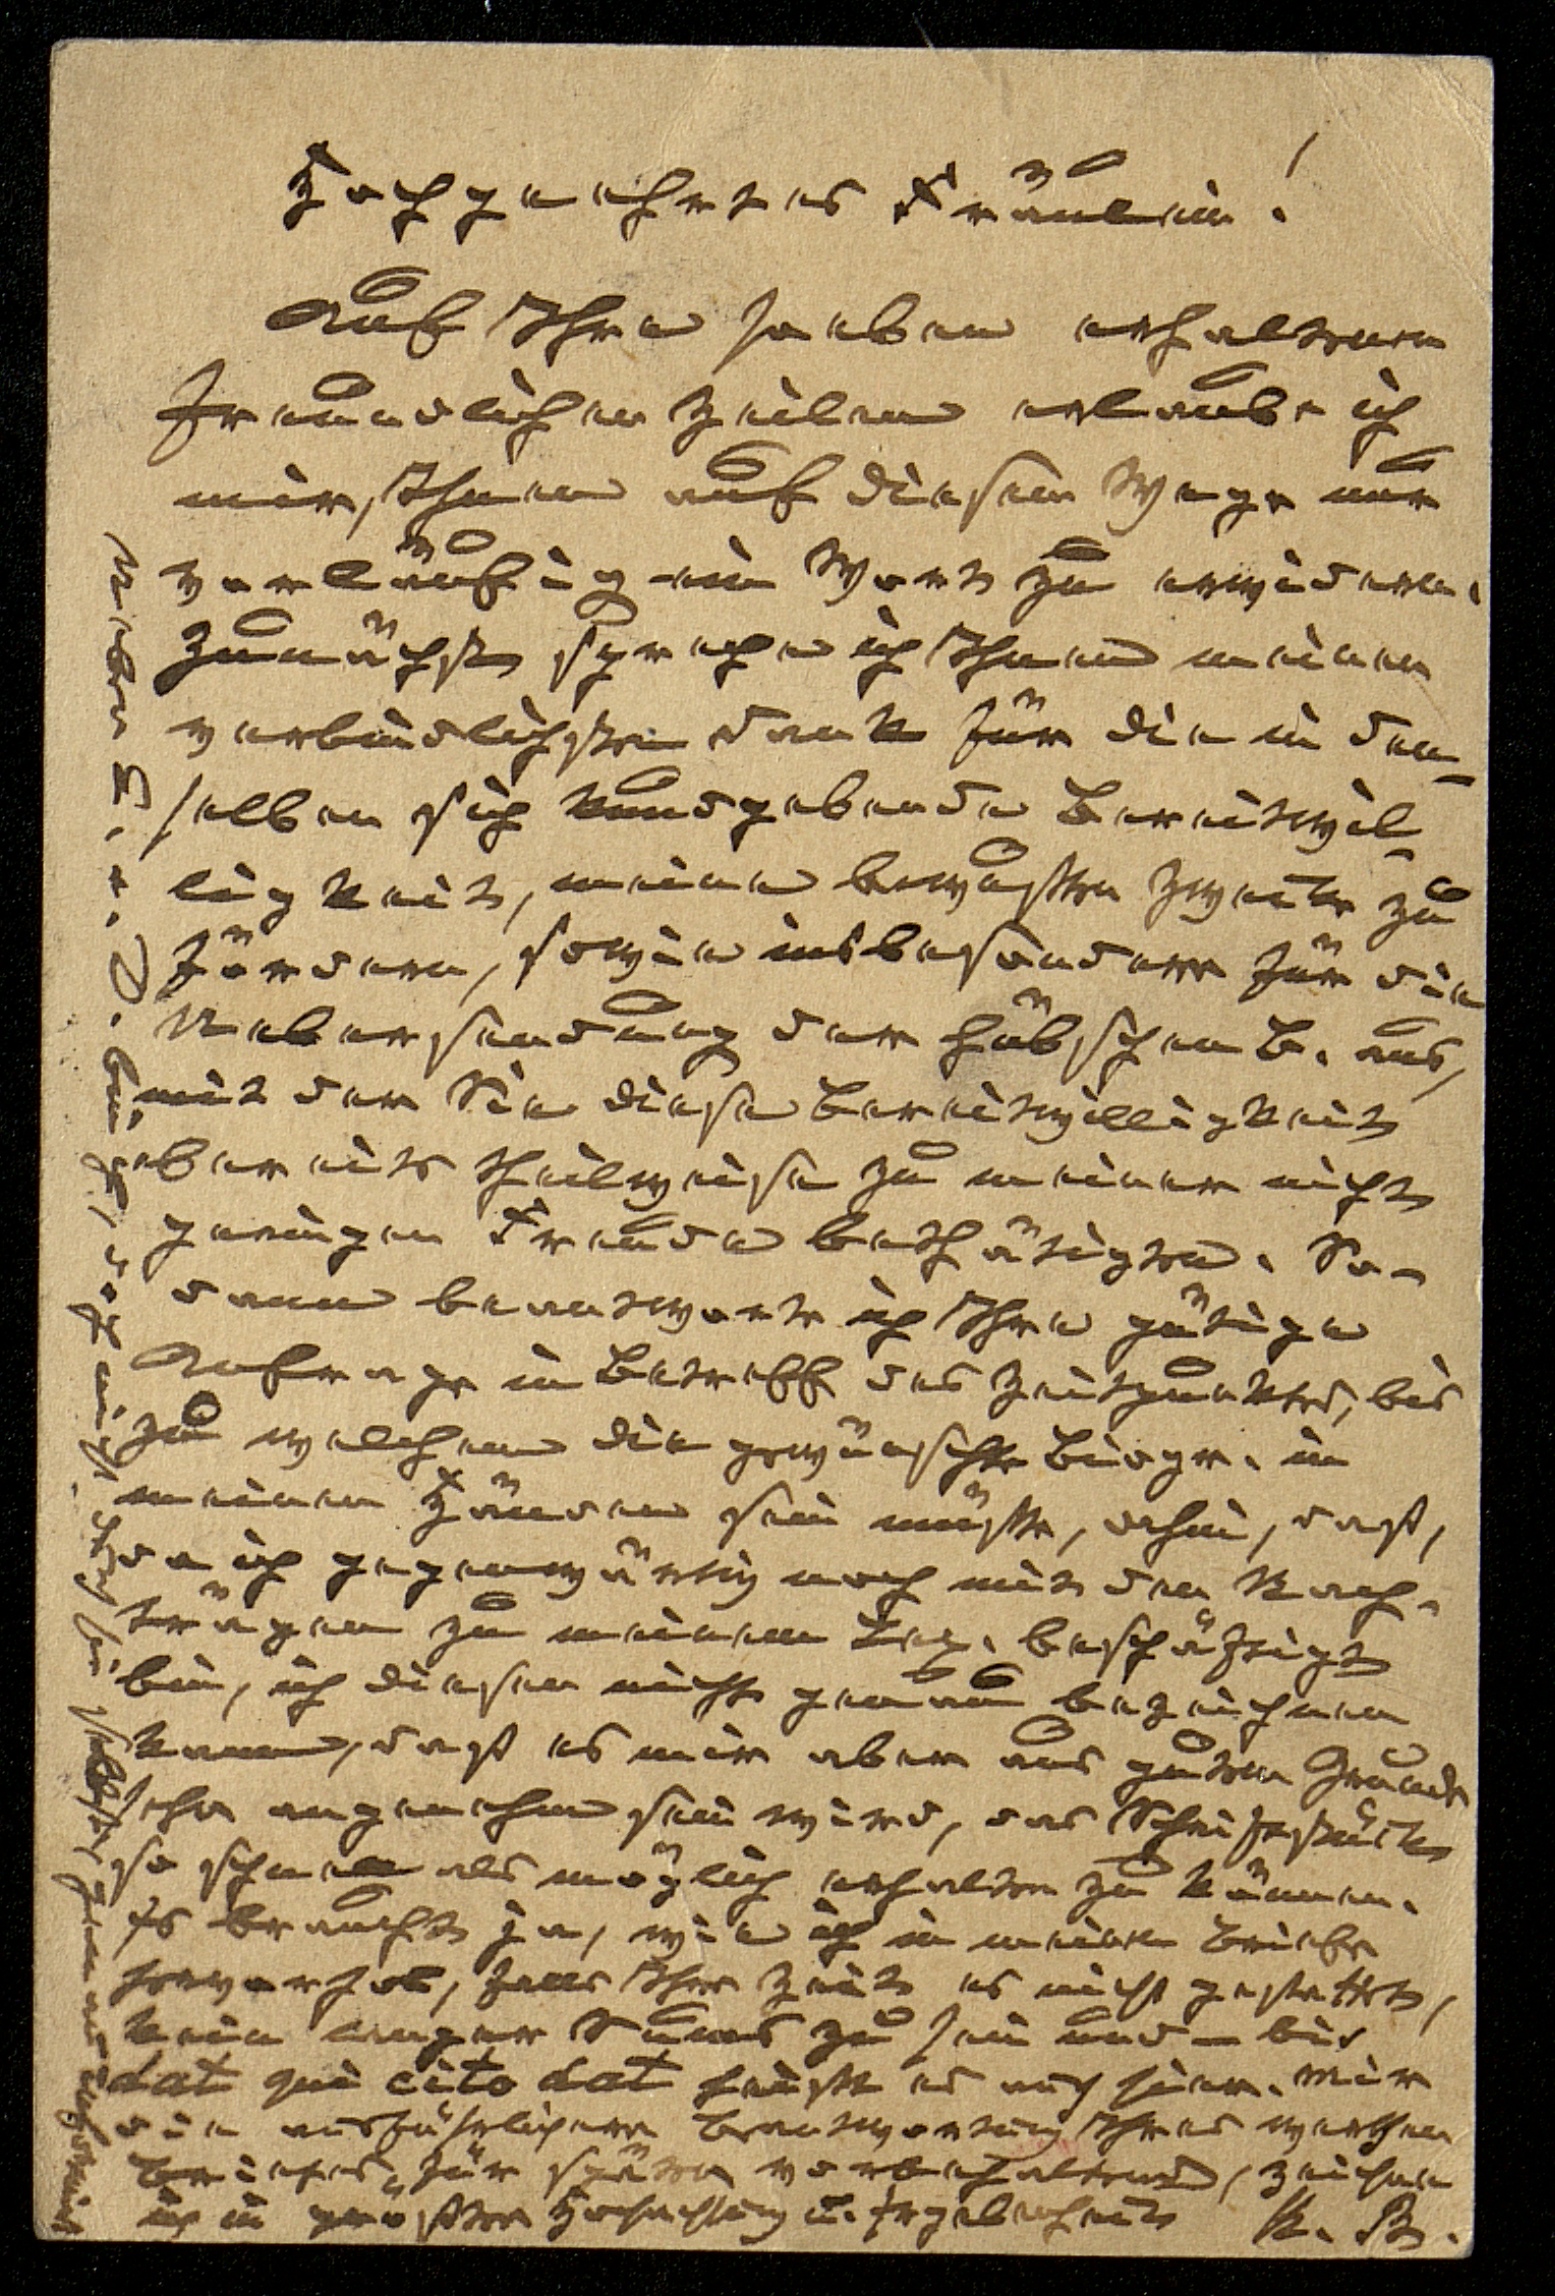 Hochgeehrtes Fräulein!
Auf Ihre soeben erhaltenen
freundlichen Zeilen erlaube ich
mir, Ihnen auf diesem Wege nur
vorläufig ein Wort zu erwidern.
Zunächst spreche ich Ihnen meinen
verbindlichsten Dank für die in den-
selben sich kundgebende Bereitwil-
ligkeit, meine bewußten Zwecke zu
fördern, sowie insbesondere für die
Uebersendung der hübschen B. aus,
mit der Sie diese Bereitwilligkeit
bereits theilweise zu meiner nicht
geringen Freude bethätigten. So-
dann beantworte ich Ihre gütige
Anfrage in Betreff des Zeitpunktes, bis
zu welchem die gewünschte Biogr. in
meinen Händen sein müßte, dahin, daß,
da ich gegenwärtig noch mit den Nach-
trägen zu meinem Lex. beschäftigt
bin, ich diesen nicht genau bezeichnen
kann, daß es mir aber aus guten Grunde
sehr angenehm sein wird, das Schriftstück
so schnell als möglich erhalten zu können.
Es braucht ja, wie ich in meinem Briefe
hervorhob, falls Ihre Zeit es nicht gestattet,
kein langer Sums zu sein und – bis
dat qui cito dat heißt es auch hier. Mir
die ausführlichere Beantwortung Ihres werthen
Briefes für später vorbehaltend, zeichne
ich in größter Hochachtung u. Ergebenheit K. B.